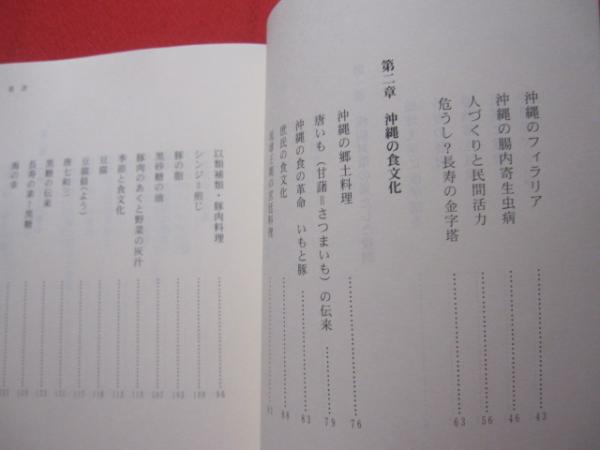 沖縄のフィラリア……43
沖縄の腸内寄生虫病……46
人づくりと民間活力……56
危うし？長寿の金字塔……63
第二章　沖縄の食文化
沖縄の郷土料理……76
唐いも（甘藷＝さつまいも）の伝来……79
沖縄の食の革命　いもと豚……83
庶民の食文化……88
琉球王朝の宮廷料理……91
以類補類・豚肉料理……96
シンジ＝煎じ……100
豚の脂
黒砂糖の頭
豚肉のあくと野菜の灰汁……112
季節と食文化……113
豆腐
豆腐餻（よう）
唐七和三
黒糖の伝来
長寿の素＝黒糖
海の幸
目次